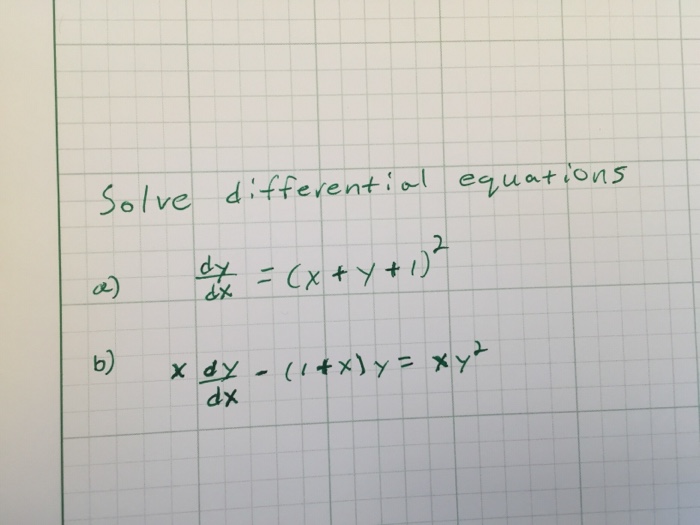 Solve differential equations
a) dy/dx = (x + y + 1)²
b) x dy/dx - (1 + x) y = xy²